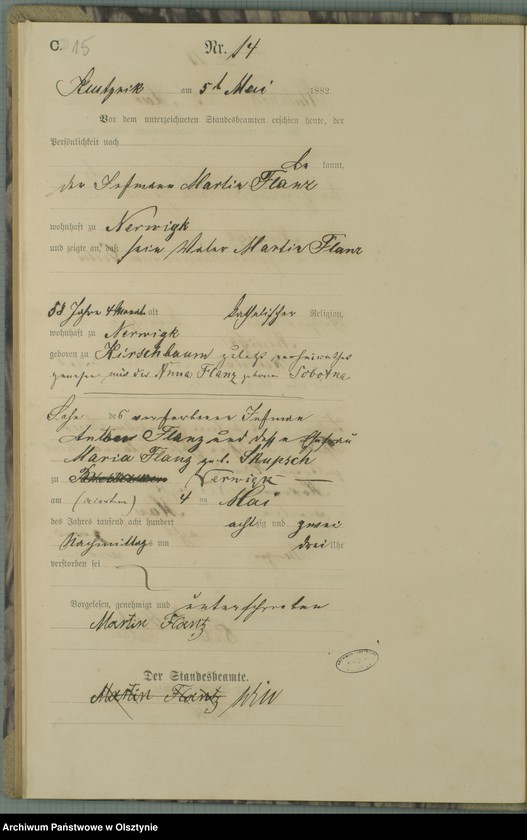 C. 15
Nr. 14
am 5t Mai 1882.
Vor dem unterzeichneten Standesbeamten erschien heute, der
Persönlichkeit nach
be kannt,
der Instmann Martin Flanz
wohnhaft zu Nerwigk
und zeigte an, daß sein Vater Martin Flanz
58 Jahre 4 Monat alt katholischer Religion,
wohnhaft zu Nerwigk
geboren zu Kirschbaum zuletzt verheirathet
gewesen mit der Anna Flanz geborne Sobotka
Sohn des verstorbenen Instmann
Anton Flanz und dessen Ehefrau
Maria Flanz geb. Skupsch
zu Nerwigk
am (vierten) 4 ten Mai
des Jahres tausend acht hundert achtzig und zwei
Nachmittags um drei Uhr
verstorben sei
Vorgelesen, genehmigt und unterschrieben
Martin Flanz
Der Standesbeamte.
Martin Flantz
Archiwum Państwowe w Olsztynie